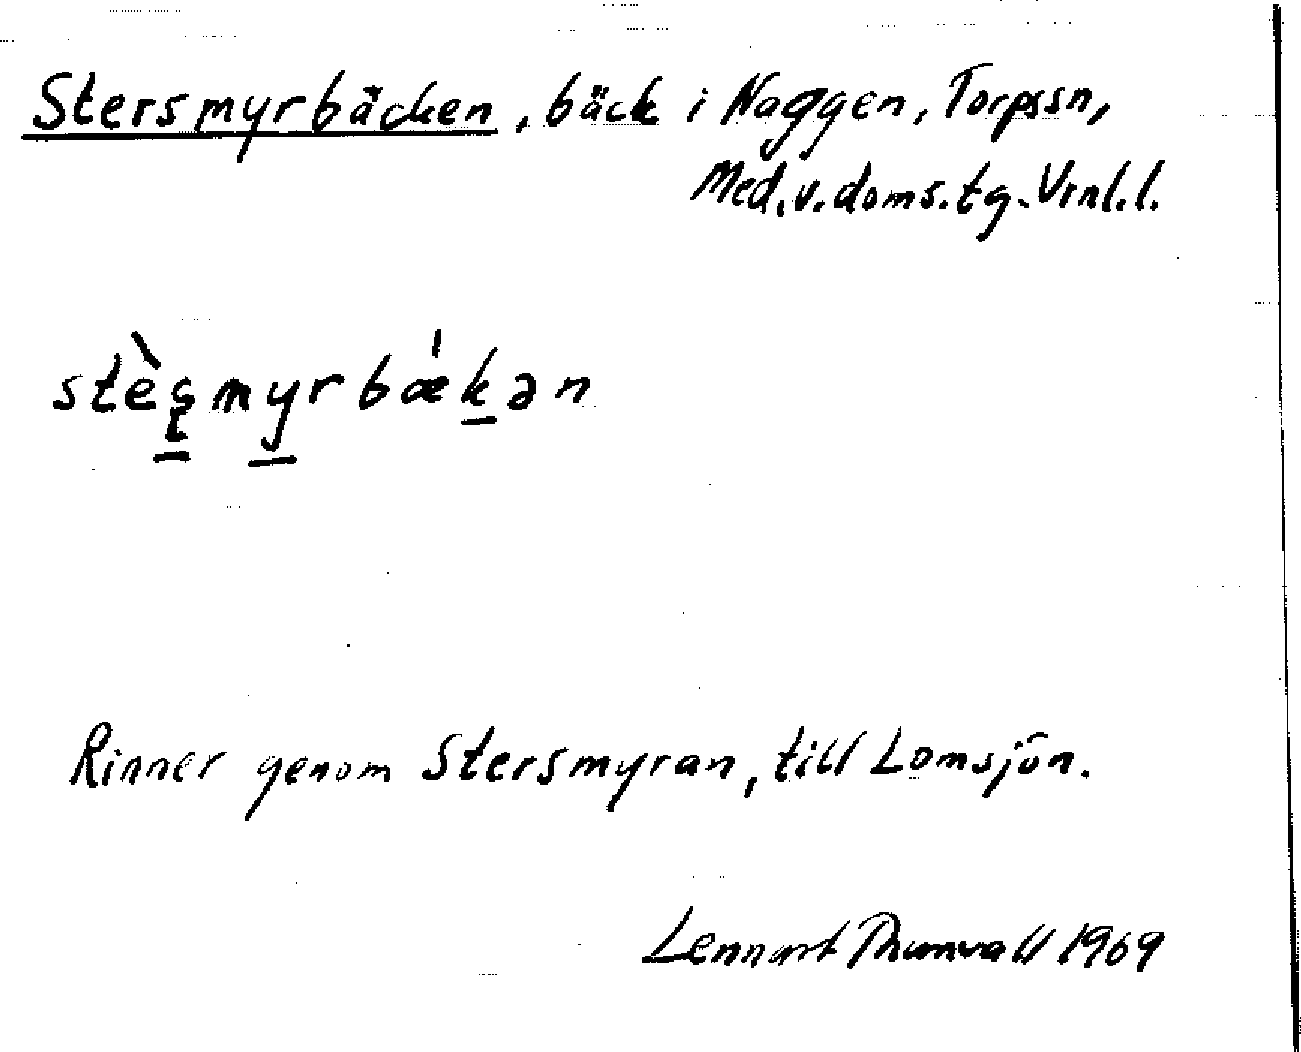 Stersmyrbäcken, bäck i Naggen, Torpssn,
Med. v. doms. tg. Vrnl. l.
stèʂmyrbǽkən
Rinner genom Stersmyran, till Lomsjön.
Lennart Thunvall 1969